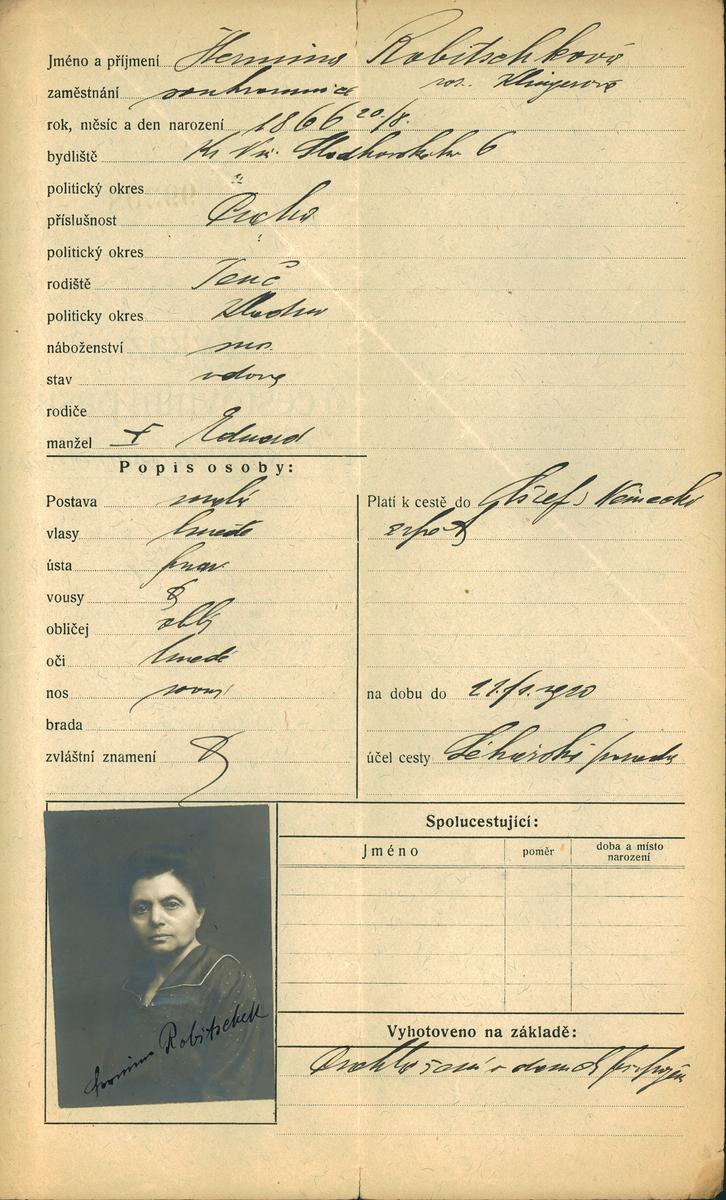 Jméno a příjmení Hermina Robitschková
zaměstnání soukromnice roz. Klingerová
rok, měsíc a den narození 1866 20/8.
bydliště Kr. Vin. 6
politický okres
příslušnost Praha
politický okres
rodiště
politicky okres
náboženství mos.
stav vdova
rodiče
manžel Eduard
Popis osoby:
Postava malá
vlasy hnědé
ústa prav.
vousy
obličej oblý
oči hnedé
nos rovný
brada
zvláštní znamení
Platí k cestě do Německo
zpět
na dobu do 1920
účel cesty Lékařská porada
Spolucestující:
Jméno poměr doba a místo
narození
Hermine Robitschek
Vyhotoveno na základě: